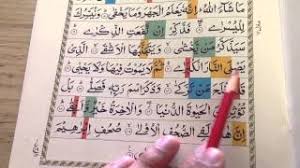 مَا شَآءَ اللّٰهُ اِنَّهٗ يَعْلَمُ الْجَهْرَ وَمَا يَخْفٰى ۝ وَنُيَسِّرُكَ
لِلْيُسْرٰى ۝ فَذَكِّرْ اِنْ نَّفَعَتِ الذِّكْرٰى ۝
سَيَذَّكَّرُ مَنْ يَّخْشٰى ۝ وَيَتَجَنَّبُهَا الْاَشْقَى ۝
يَصْلَى النَّارَ الْكُبْرٰى ۝ ثُمَّ لَا يَمُوْتُ فِيْهَا وَلَا يَحْيٰى
قَدْ اَفْلَحَ مَنْ تَزَكّٰى ۝ وَذَكَرَ اسْمَ رَبِّهٖ
تُؤْثِرُوْنَ الْحَيٰوةَ الدُّنْيَا ۝ وَالْاٰخِرَةُ خَيْرٌ
اِنَّ هٰذَا لَفِي الصُّحُفِ الْاُوْلٰى ۝ صُحُفِ اِبْرٰهِيْمَ